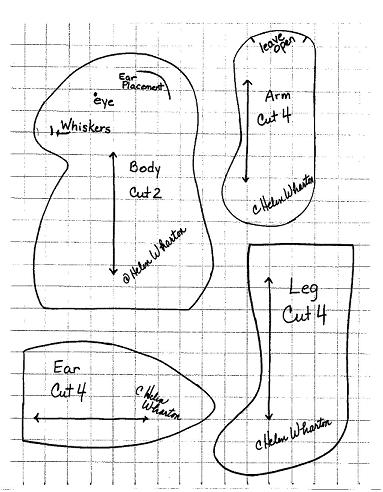 Ear
Placement
eye
Whiskers
Body
Cut 2
© Helen Wharton
leave
open
Arm
Cut 4
© Helen Wharton
Leg
Cut 4
© Helen Wharton
Ear
Cut 4
© Helen
Wharton